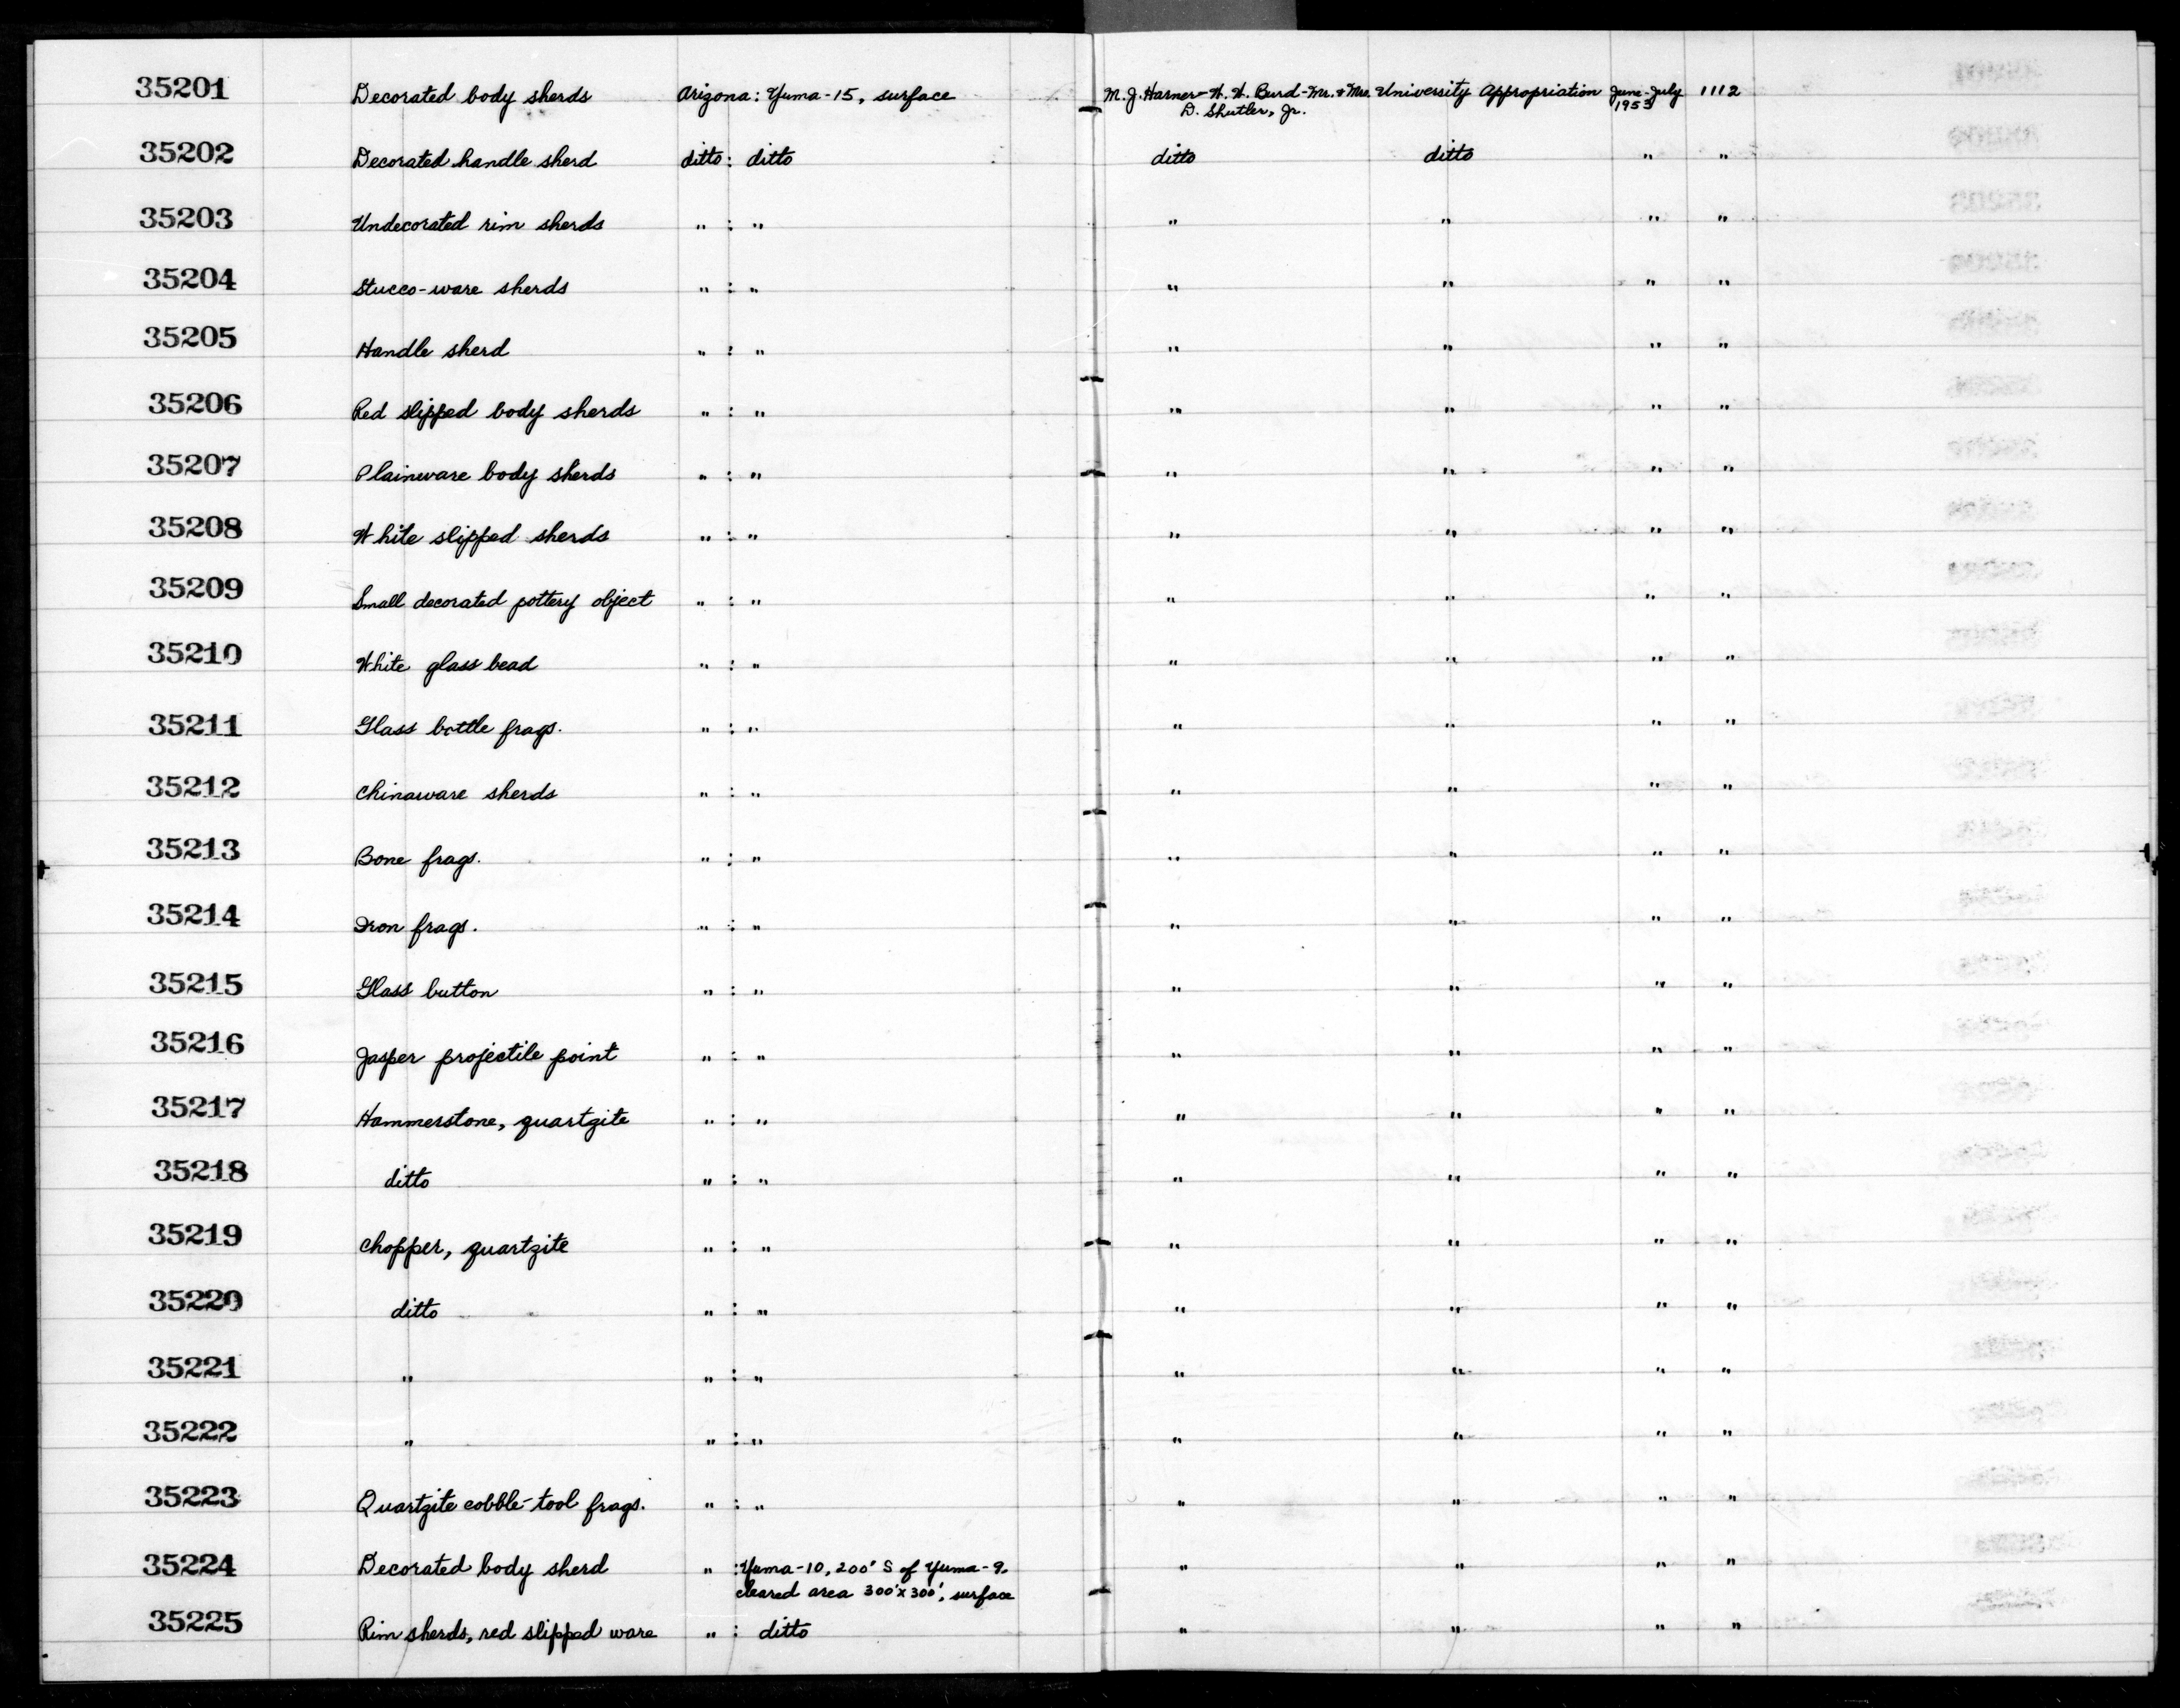 35201 Decorated body sherds Arizona: Yuma-15, surface M. J. Harner-W. W. Burd-Mr. & Mrs. University Appropriation June-July 1112
D. Shutler, Jr. 1953
35202 Decorated handle sherd ditto: ditto ditto ditto " "
35203 Undecorated rim sherds " : " " " " "
35204 Stucco-ware sherds " : " " " " "
35205 Handle sherd " : " " " " "
35206 Red slipped body sherds " : " " " " "
35207 Plainware body sherds " : " " " " "
35208 White slipped sherds " : " " " " "
35209 Small decorated pottery object " : " " " " "
35210 White glass bead " : " " " " "
35211 Glass bottle frags. " : " " " " "
35212 Chinaware sherds " : " " " " "
35213 Bone frags. " : " " " " "
35214 Iron frags. " : " " " " "
35215 Glass button " : " " " " "
35216 Jasper projectile point " : " " " " "
35217 Hammerstone, quartzite " : " " " " "
35218 ditto " : " " " " "
35219 Chopper, quartzite " : " " " " "
35220 ditto " : " " " " "
35221 " " : " " " " "
35222 " " : " " " " "
35223 Quartzite cobble-tool frags. " : " " " " "
35224 Decorated body sherd " : Yuma-10, 200' S of Yuma-9. " " " "
cleared area 300'x300', surface
35225 Rim sherds, red slipped ware " : ditto " " " "